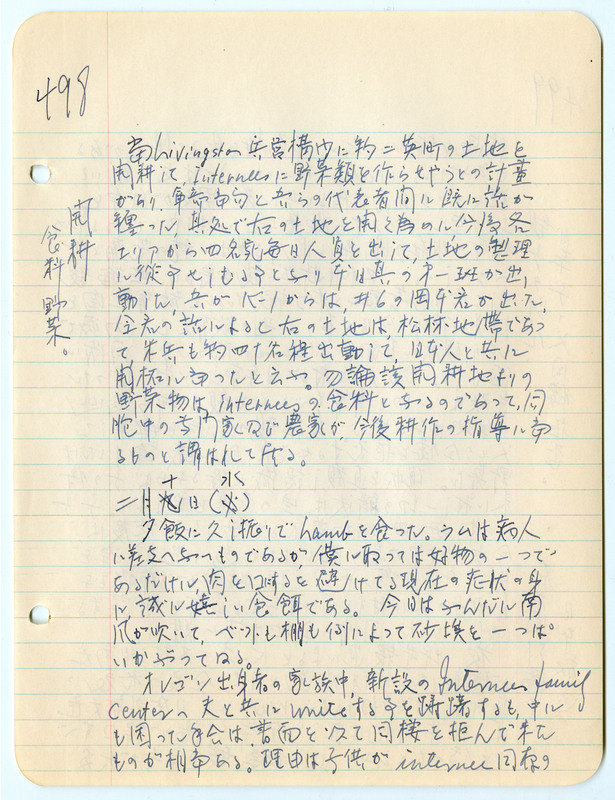 498
開耕
食料野菜。
当Livingston兵営構内に約二英町の土地を
開耕して、Interneesに野菜類を作らせやうとの計画
があり、軍当局と吾らの代表者間に既に話が
纏った。其処で右の土地を開く為めに今後各
エリアから四名宛毎日人員を出して、土地の整理
に従事せしむる事となり本日其の第一班が出
動した。吾がK-1からは、#6の岡本君が出た。
同君の話によると右の土地は、松林地帯であっ
て、米兵も約四十名程出動して、日本人と共に
開拓に当ったと云ふ。勿論該開耕地よりの
野菜物は、interneesの食料となるのであって、同
胞中の専門家及び農家が、今後耕作の指導に当
るものと謂はれて居る。
二月十日(水)
夕飯に久し振りでlambを食った。ラムは病人
に差支へないものであるが、僕に取っては好物の一つで
あるだけに肉を口にするを避けてる現在の症状の身
に、誠に嬉しい食餌である。 今日はふんだに南
風が吹いて、ベットも棚も例によって砂埃を一っぱ
いかぶってゐる。
オレゴン出身者の家族中、新設のInternees family
centerへ夫と共にuniteする事を躊躇するも、中に
も困った手合は、書面を以て同棲を拒んで来た
ものが相当ある。理由は子供がinternee同様の